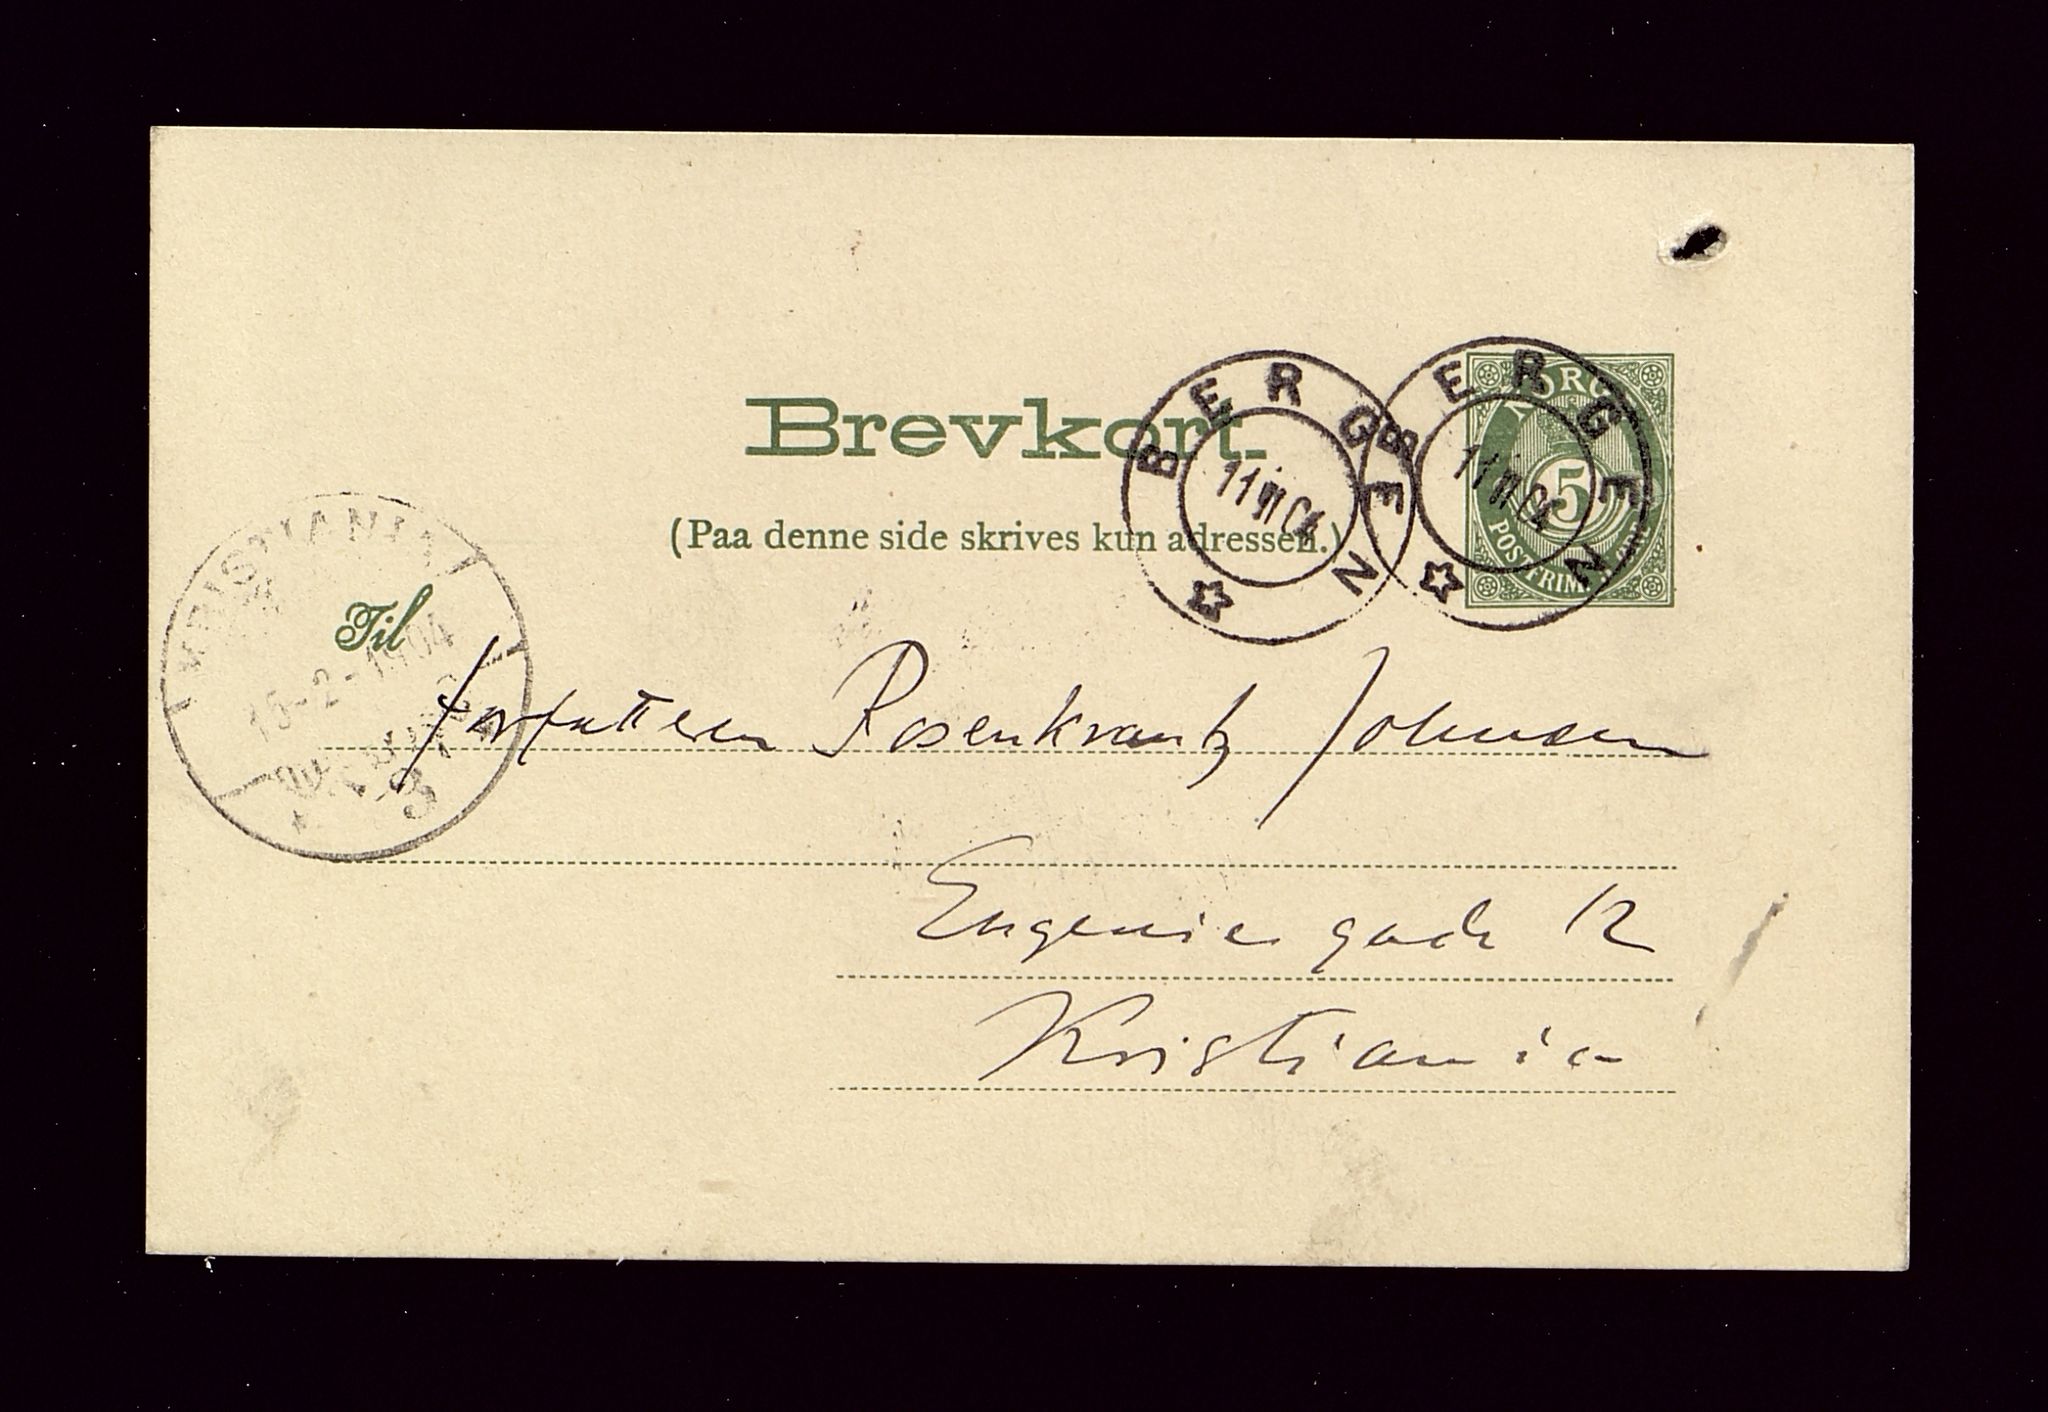 Brevkort.
(Paa denne side skrives kun adressen.)
BERGEN
11 II 04
BERGEN
11 II 04
NORGE
5
POSTFRIM.
KRISTIANIA
15-2-1904
3
Til
Forfatteren Rosenkrantz Johnsen
Eugenie gade 12
Kristiania